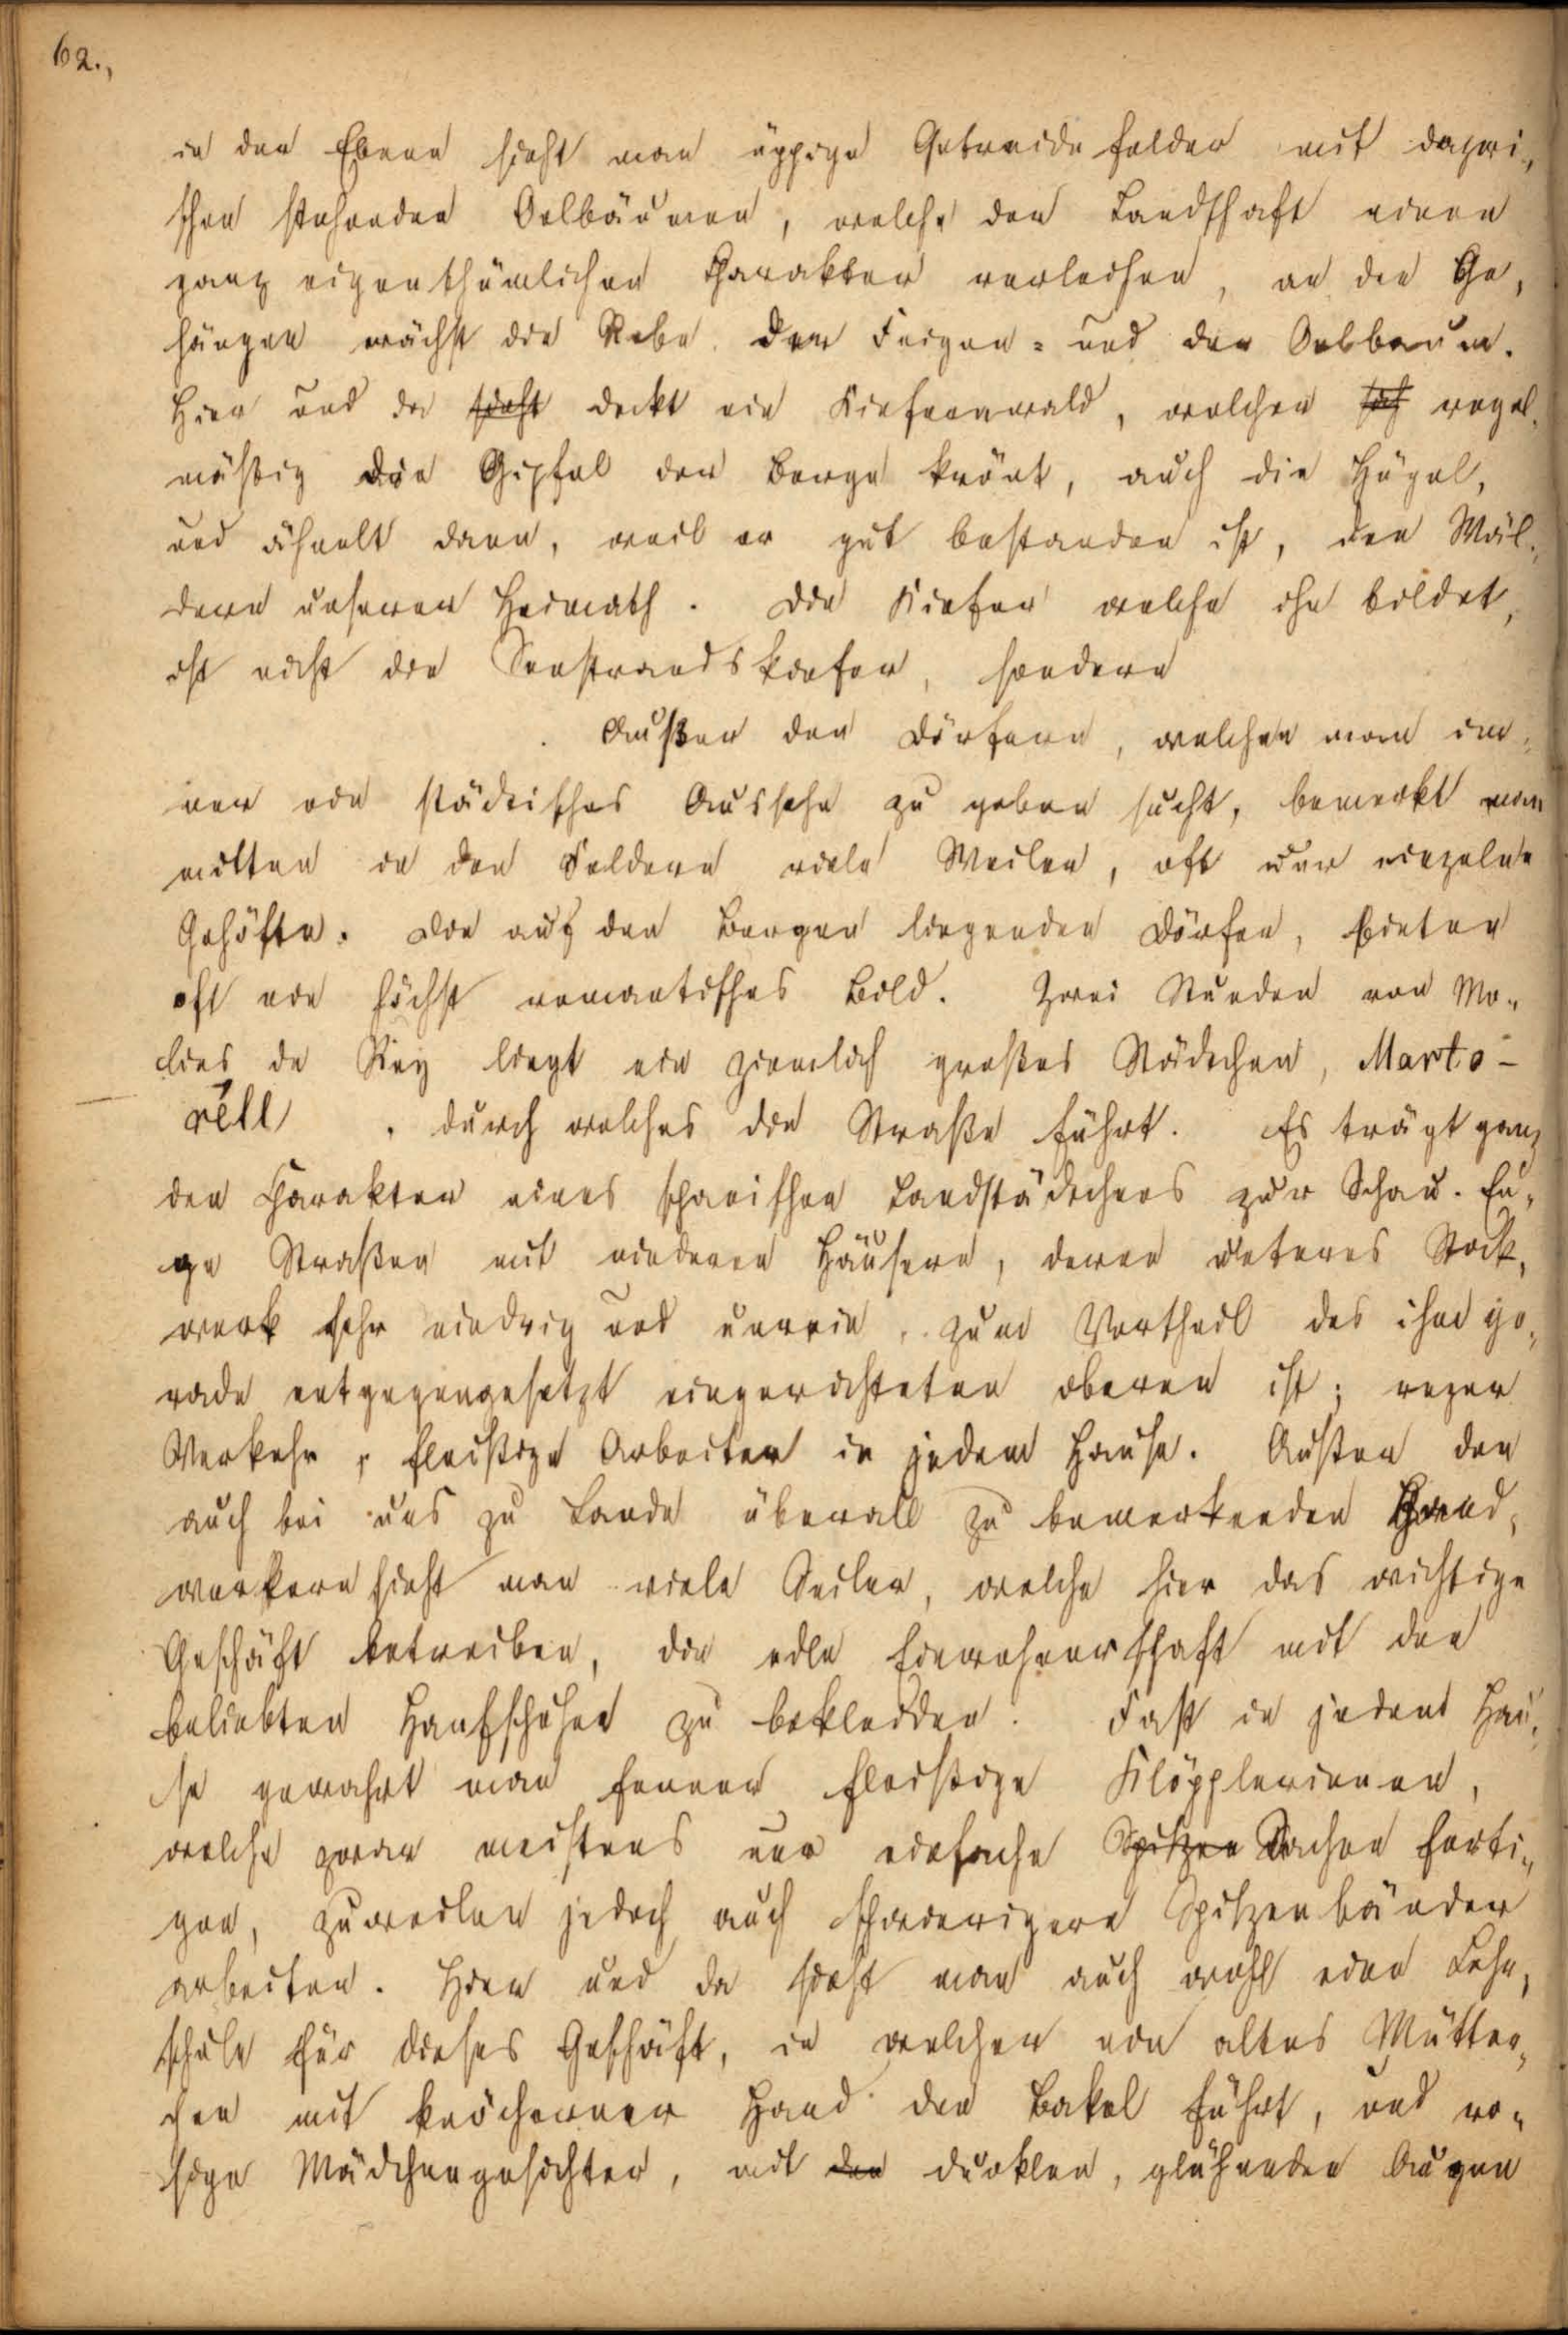 62.,
in der Ebene sieht man üppige Getreidefelder mit dazwi„
schen stehenden Oelbäumen, welche der Landschaft einen
ganz eigenthümlichen Charakter verleihen, an den Ge„
hängen wächst die Rebe, der Feigen= und der Oelbaum.
Hier und da sieht deckt ein Kiefernwald, welcher sich regel„
mäßig die Gipfel der Berge krönt, auch die Hügel,
und ähnelt dann, weil er gut bestanden ist, den Wäl„
dern unserer Heimath. Die Kiefer welche ihn bildet,
ist nicht die Seestrandskiefer, sondern
Außer den Dörfern, welchen man im„
mer ein städtisches Aussehn zu geben sucht, bemerkt man
mitten in den Feldern viele Weiler, oft nur einzelne
Gehöfte. Die auf den Bergen liegenden Dörfer, bieten
oft ein höchst romantisches Bild. Zwei Stunden von Mo„
lins de Rey liegt ein ziemlich großes Städtchen, Marto-
réll, durch welches die Straße führt. Es trägt ganz
den Charakter eines spanischen Landstädtchens zur Schau. En„
ge Straßen mit niederen Häusern, deren unteres Stock„
werk sehr niedrig und unrein, zum Vortheil des ihm ge„
rade entgegengesetzt eingerichteten oberen ist; reger
Verkehr, fleißige Arbeiter in jedem Hause. Außer den
auch bei uns zu Lande überall zu bemerkenden Hand„
werkern sieht man viele Seiler, welche hier das wichtige
Geschäft betreiben, die edle Einwohnerschaft mit den
beliebten Hanfschuhen zu bekleiden. Fast in jedem Hau„
se gewahrt man ferner fleißige Klöpplerinnen,
welche zwar meistens nur einfache Spitzen Sachen ferti„
gen, zuweilen jedoch auch schwierigere Spitzenbänder
arbeiten. Hier und da sieht man auch wohl eine Lehr„
schule für dieses Geschäft, in welcher ein altes Mütter„
chen mit knöcherner Hand den Bakel führt, und ro„
sige Mädchengesichter, mit den dunklen, glühenden Augen